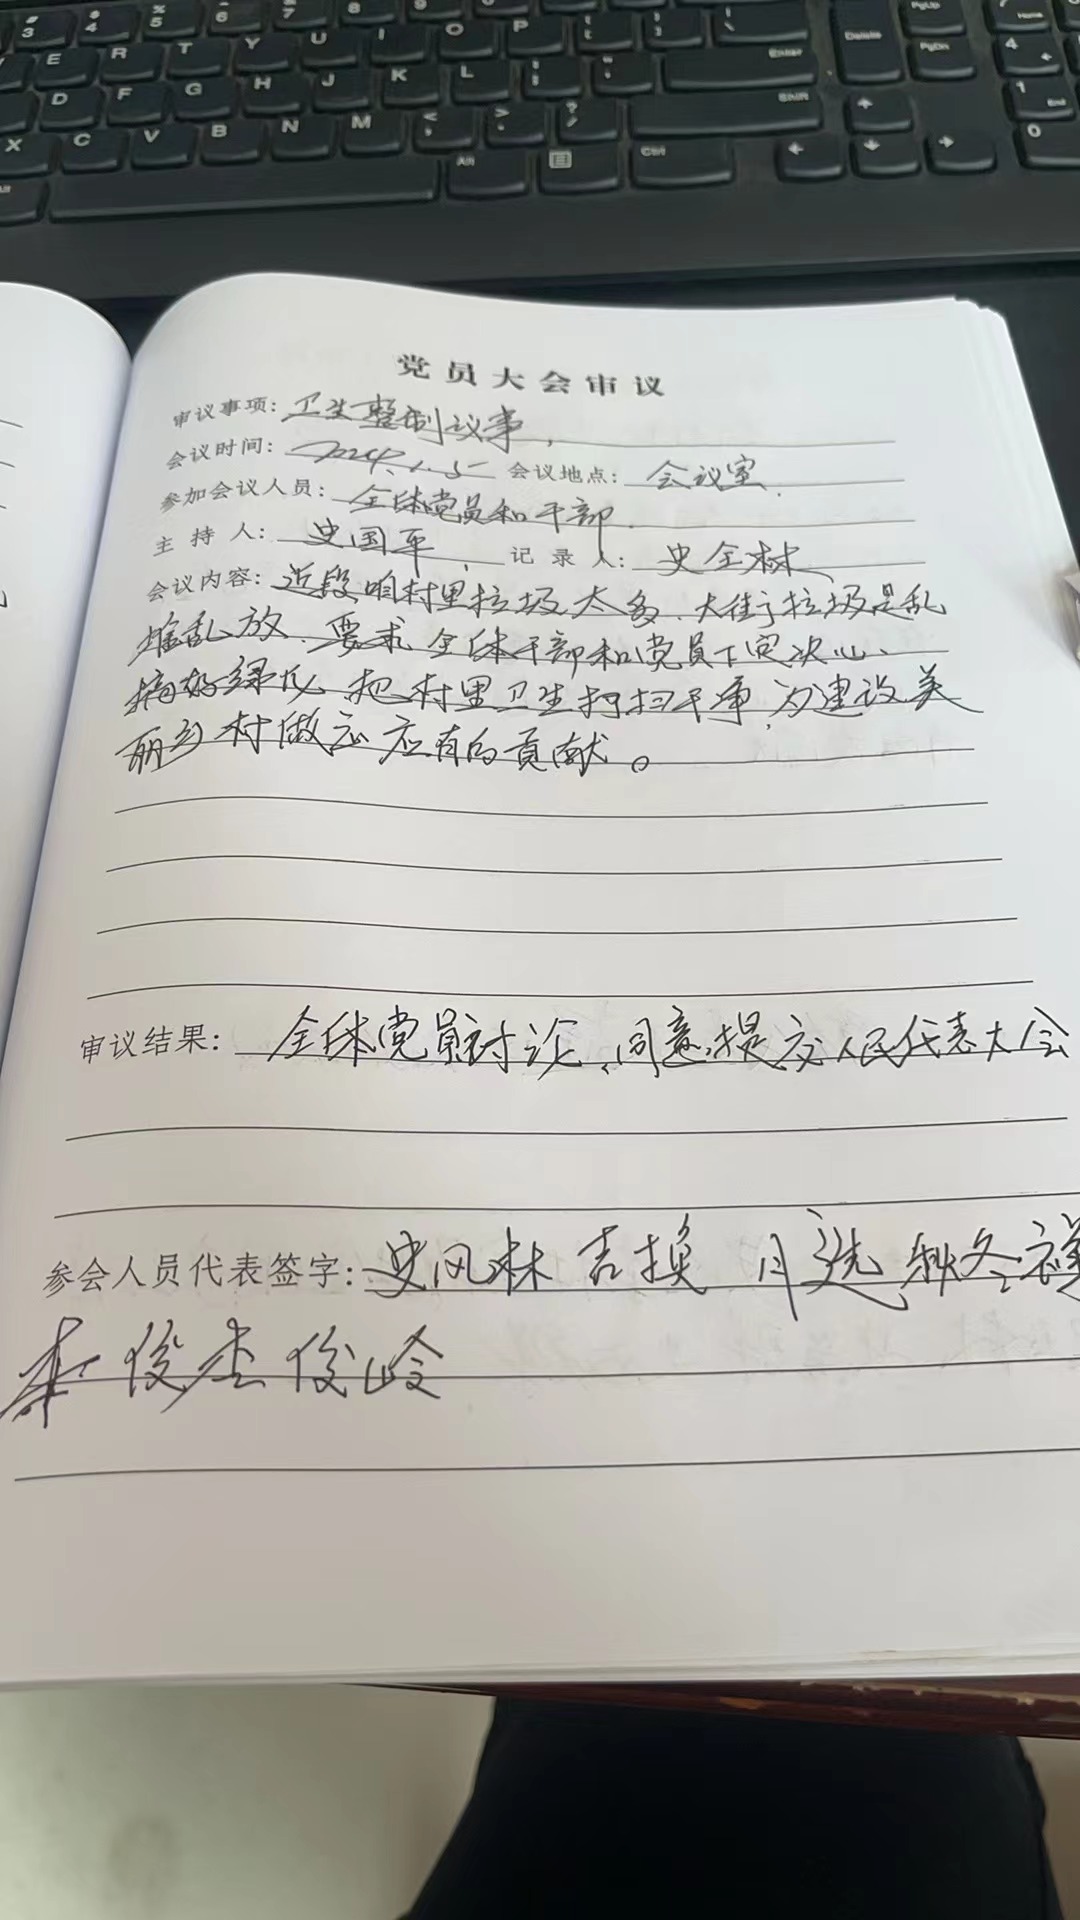 党员大会审议
审议事项: 卫生整制议事,
会议时间: 2024.1.5 会议地点: 会议室.
参加会议人员: 全体党员和干部.
主持人: 史国平, 记录人: 史全林
会议内容: 近段咱村里垃圾太多、大街垃圾是乱
堆乱放. 要求全体干部和党员下定决心、
搞好绿化 把村里卫生打扫干净, 为建设美
丽乡村做应有的贡献。
审议结果: 全体党员讨论、同意提交人民代表大会
参会人员代表签字: 史风林 吉换 月选 秋冬祥
俊杰 俊岭